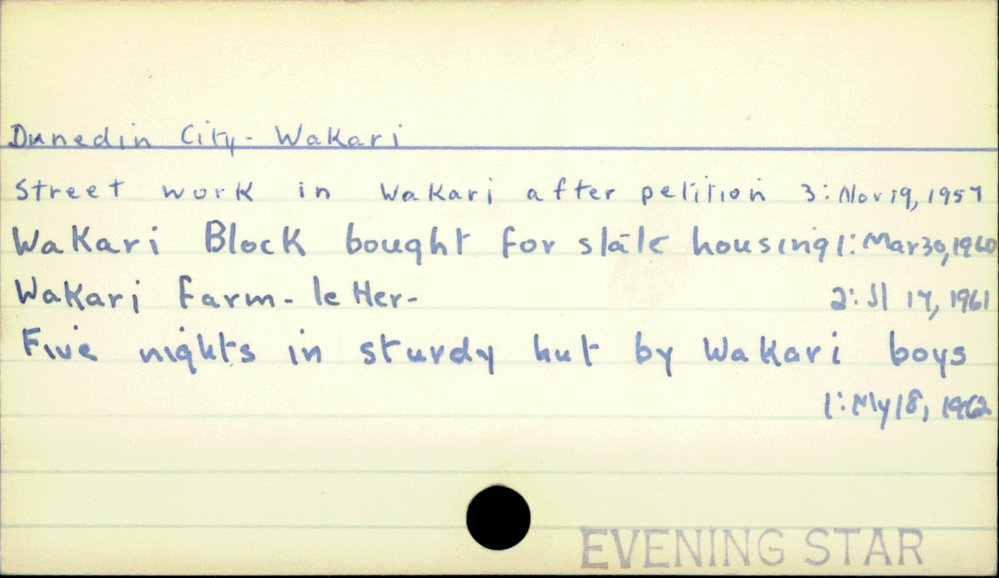 Dunedin City - Wakari
Street work in Wakari after petition 3: Nov 19, 1957
Wakari Block bought for state housing 1: Mar 30, 1960
Wakari Farm - letter - 2: Jl 17, 1961
Five nights in sturdy hut by Wakari boys
1: My 18, 1962
EVENING STAR